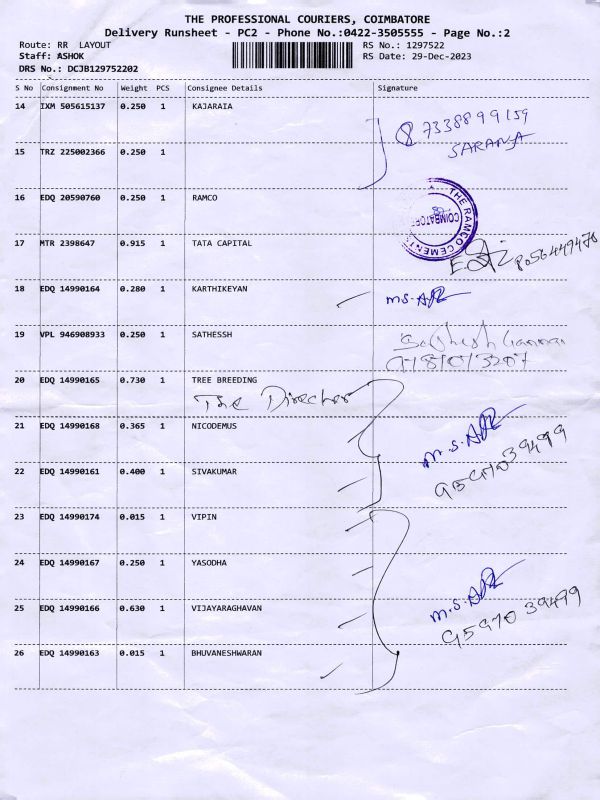 THE PROFESSIONAL COURIERS, COIMBATORE
Delivery Runsheet - PC2 - Phone No.:0422-3505555 - Page No.:2
Route: RR LAYOUT RS No.: 1297522
Staff: ASHOK RS Date: 29-Dec-2023
DRS No.: DCJB129752202
S No Consignment No Weight PCS Consignee Details Signature
14 IXM 505615137 0.250 1 KAJARAIA
7338899159
SARANYA
15 TRZ 225002366 0.250 1
16 EDQ 20590760 0.250 1 RAMCO
THE RAMCO CEMENT
COIMBATORE
17 MTR 2398647 0.915 1 TATA CAPITAL
18 EDQ 14990164 0.280 1 KARTHIKEYAN
M.S.
19 VPL 946908933 0.250 1 SATHESSH
20 EDQ 14990165 0.730 1 TREE BREEDING
The Director
21 EDQ 14990168 0.365 1 NICODEMUS
M.S.
22 EDQ 14990161 0.400 1 SIVAKUMAR
23 EDQ 14990174 0.015 1 VIPIN
24 EDQ 14990167 0.250 1 YASODHA
25 EDQ 14990166 0.630 1 VIJAYARAGHAVAN
M.S.
26 EDQ 14990163 0.015 1 BHUVANESHWARAN